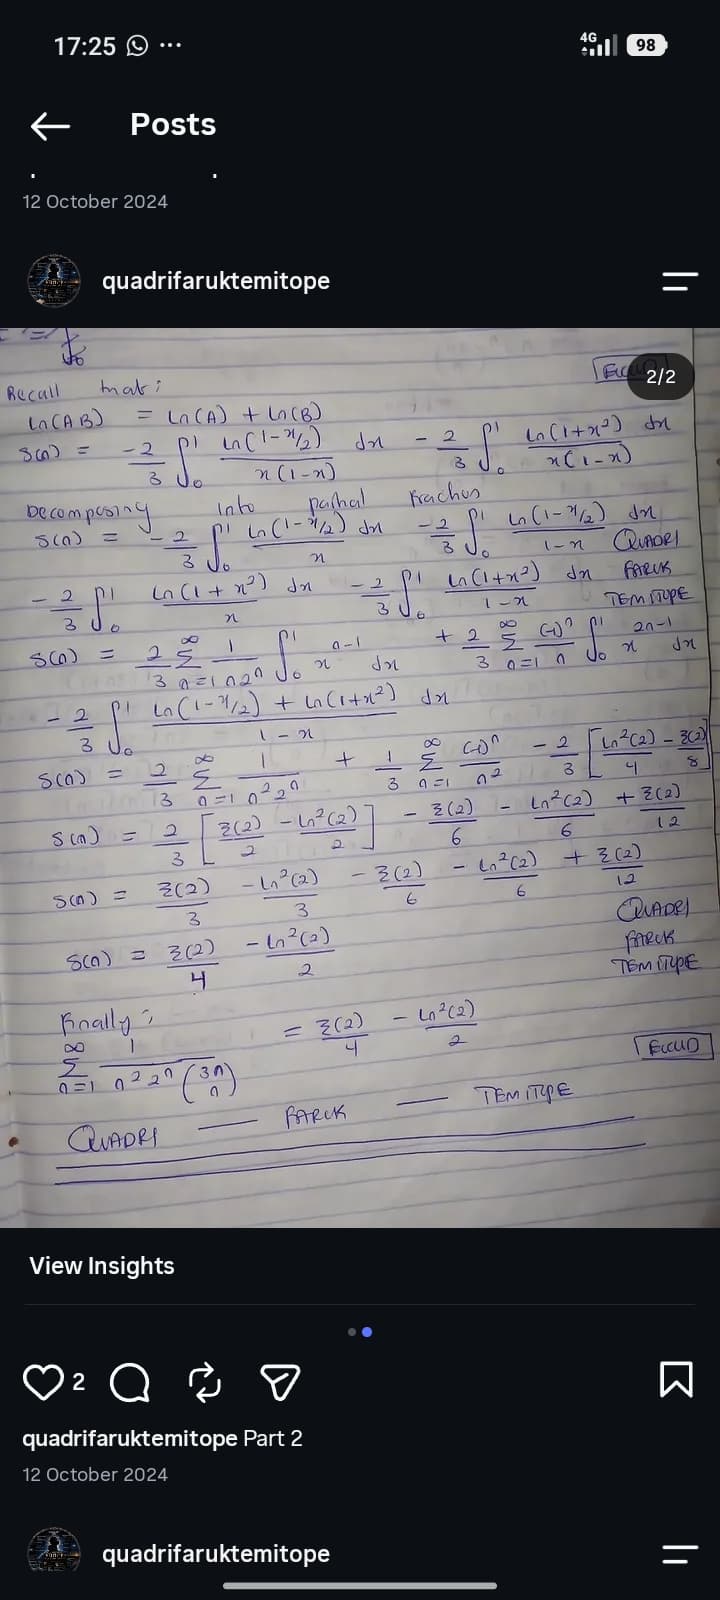 17:25 ...
4G 98
Posts
12 October 2024
quadrifaruktemitope
2/2
Recall that:
ln(AB) = ln(A) + ln(B)
S(n) = -2/3 ∫₀¹ ln(1-x/2)/x(1-x) dx - 2/3 ∫₀¹ ln(1+x²)/x(1-x) dx
Decomposing into partial fractions
S(n) = -2/3 ∫₀¹ ln(1-x/2)/x dx - 2/3 ∫₀¹ ln(1-x/2)/1-x dx
QUADRI
- 2/3 ∫₀¹ ln(1+x²)/x dx - 2/3 ∫₀¹ ln(1+x²)/1-x dx
FARUK
TEMITOPE
S(n) = 2/3 Σ_{n=1}^∞ 1/n2ⁿ ∫₀¹ xⁿ⁻¹ dx + 2/3 Σ_{n=1}^∞ (-1)ⁿ/n ∫₀¹ x²ⁿ⁻¹ dx
- 2/3 ∫₀¹ ln(1-x/2) + ln(1+x²)/1-x dx
S(n) = 2/3 Σ_{n=1}^∞ 1/n²2ⁿ + 1/3 Σ_{n=1}^∞ (-1)ⁿ/n² - 2/3 [ln²(2)/4 - ξ(2)/8]
S(n) = 2/3 [ξ(2)/2 - ln²(2)/2] - ξ(2)/6 - ln²(2)/6 + ξ(2)/12
S(n) = ξ(2)/3 - ln²(2)/3 - ξ(2)/6 - ln²(2)/6 + ξ(2)/12
QUADRI
FARUK
TEMITOPE
S(n) = ξ(2)/4 - ln²(2)/2
Finally;
Σ_{n=1}^∞ 1/n²2ⁿ(3n n) = ξ(2)/4 - ln²(2)/2
EUCLID
QUADRI — FARUK — TEMITOPE
View Insights
2
quadrifaruktemitope Part 2
12 October 2024
quadrifaruktemitope